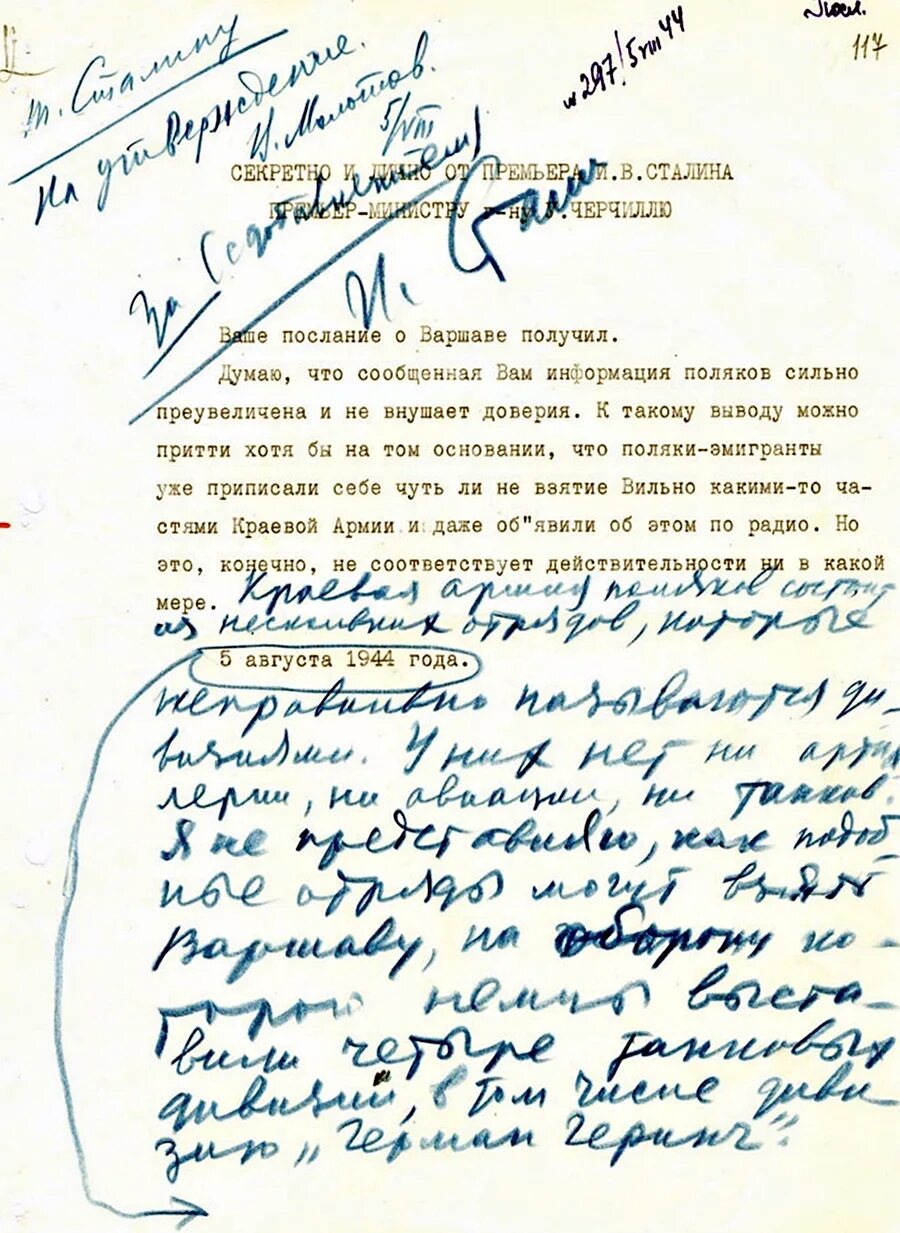 Посл.
117
№ 297/5 VIII 44
т. Сталину
На утверждение.
В. Молотов.
5/VIII
СЕКРЕТНО И ЛИЧНО ОТ ПРЕМЬЕРА И.В.СТАЛИНА
ПРЕМЬЕР-МИНИСТРУ г-ну У.ЧЕРЧИЛЛЮ
За (с добавлением)
И. Сталин
Ваше послание о Варшаве получил.
Думаю, что сообщенная Вам информация поляков сильно
преувеличена и не внушает доверия. К такому выводу можно
притти хотя бы на том основании, что поляки-эмигранты
уже приписали себе чуть ли не взятие Вильно какими-то ча-
стями Краевой Армии и даже об"явили об этом по радио. Но
это, конечно, не соответствует действительности ни в какой
мере. Краевая армия поляков состоит
из нескольких отрядов, которые
5 августа 1944 года.
неправильно называются ди-
визиями. У них нет ни артил
лерии, ни авиации, ни танков.
Я не представляю, как подоб
ные отряды могут взять
Варшаву, на оборону ко-
торой немцы выста-
вили четыре танковых
дивизии, в том числе диви
зию „Герман Геринг".